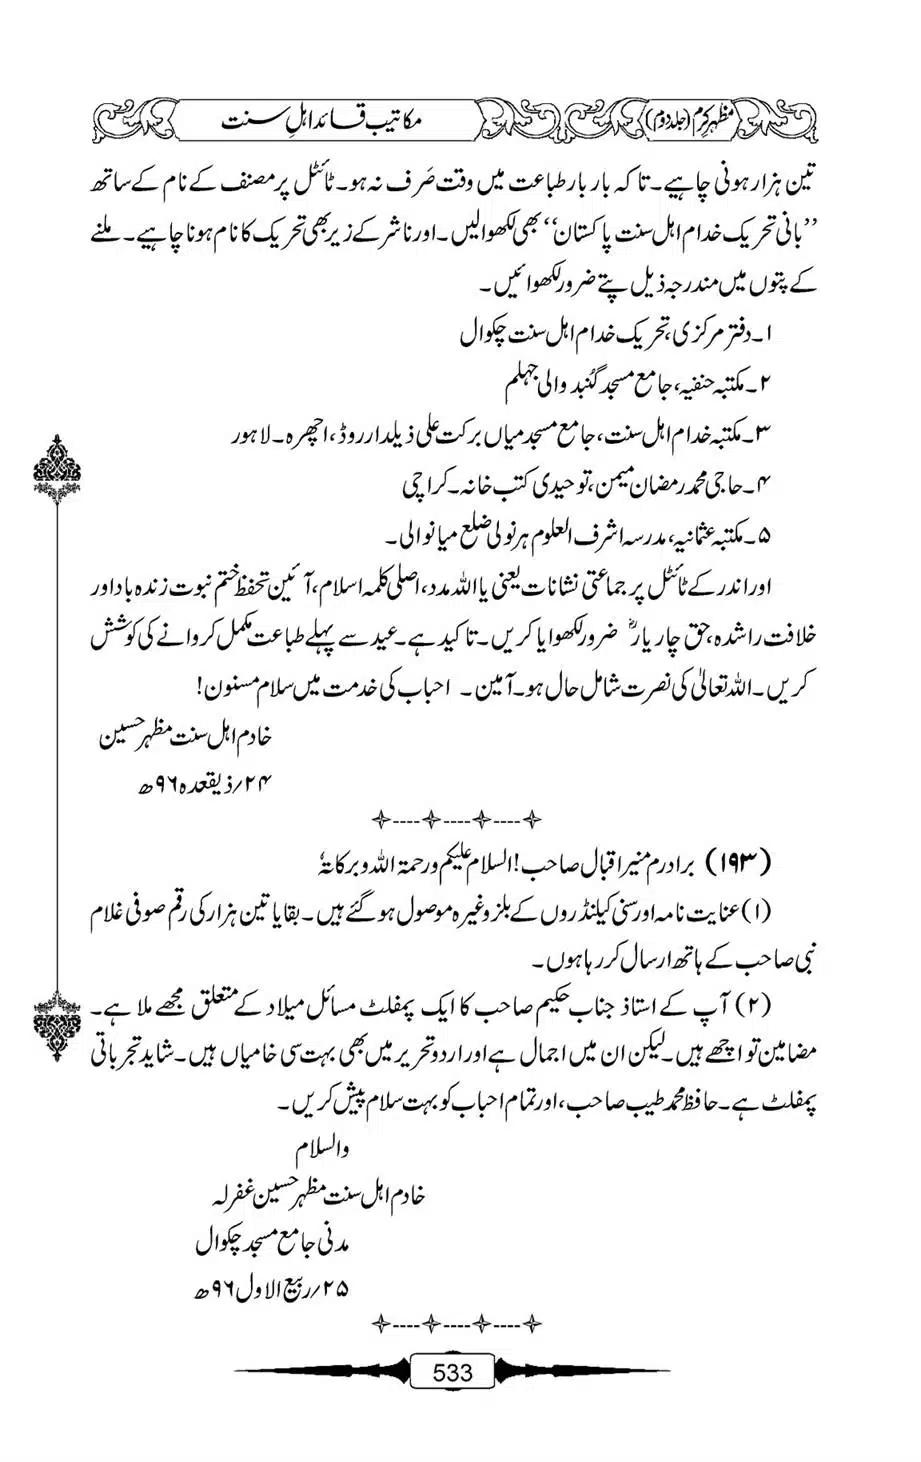 مظہر کرم (جلد دوم)
مکاتیب قائد اہل سنت
تین ہزار ہونی چاہیے۔ تاکہ بار بار طباعت میں وقت صَرف نہ ہو۔ ٹائٹل پر مصنف کے نام کے ساتھ
’’بانی تحریک خدام اہل سنت پاکستان‘‘ بھی لکھوا لیں۔ اور ناشر کے زیر بھی تحریک کا نام ہونا چاہیے۔ ملنے
کے پتوں میں مندرجہ ذیل پتے ضرور لکھوائیں۔
۱۔ دفتر مرکزی، تحریک خدام اہل سنت چکوال
۲۔ مکتبہ حنفیہ، جامع مسجد گنُبد والی جہلم
۳۔ مکتبہ خدام اہل سنت، جامع مسجد میاں برکت علی ذیلدار روڈ، اچھرہ۔ لاہور
۴۔ حاجی محمد رمضان میمن، توحیدی کتب خانہ۔ کراچی
۵۔ مکتبہ عثمانیہ، مدرسہ اشرف العلوم ہرنولی ضلع میانوالی۔
اور اندر کے ٹائٹل پر جماعتی نشانات یعنی یا اللہ مدد، اصلی کلمہ اسلام، آئین تحفظ ختم نبوت زندہ باد اور
خلافت راشدہ، حق چار یارؓ ضرور لکھوایا کریں۔ تاکید ہے۔ عید سے پہلے طباعت مکمل کروانے کی کوشش
کریں۔ اللہ تعالیٰ کی نصرت شامل حال ہو۔ آمین۔ احباب کی خدمت میں سلام مسنون!
خادم اہل سنت مظہر حسین
۲۴/ ذیقعدہ ۹۶ھ
(۱۹۳) برادرم منیر اقبال صاحب! السلام علیکم ورحمۃ اللہ وبرکاتہٗ
(۱) عنایت نامہ اور سنی کیلنڈروں کے بلز وغیرہ موصول ہو گئے ہیں۔ بقایا تین ہزار کی رقم صوفی غلام
نبی صاحب کے ہاتھ ارسال کر رہا ہوں۔
(۲) آپ کے استاذ جناب حکیم صاحب کا ایک پمفلٹ مسائل میلاد کے متعلق مجھے ملا ہے۔
مضامین تو اچھے ہیں۔ لیکن ان میں اجمال ہے اور اردو تحریر میں بھی بہت سی خامیاں ہیں۔ شاید تجرباتی
پمفلٹ ہے۔ حافظ محمد طیب صاحب، اور تمام احباب کو بہت سلام پیش کریں۔
والسلام
خادم اہل سنت مظہر حسین غفرلہ
مدنی جامع مسجد چکوال
۲۵/ ربیع الاول ۹۶ھ
533